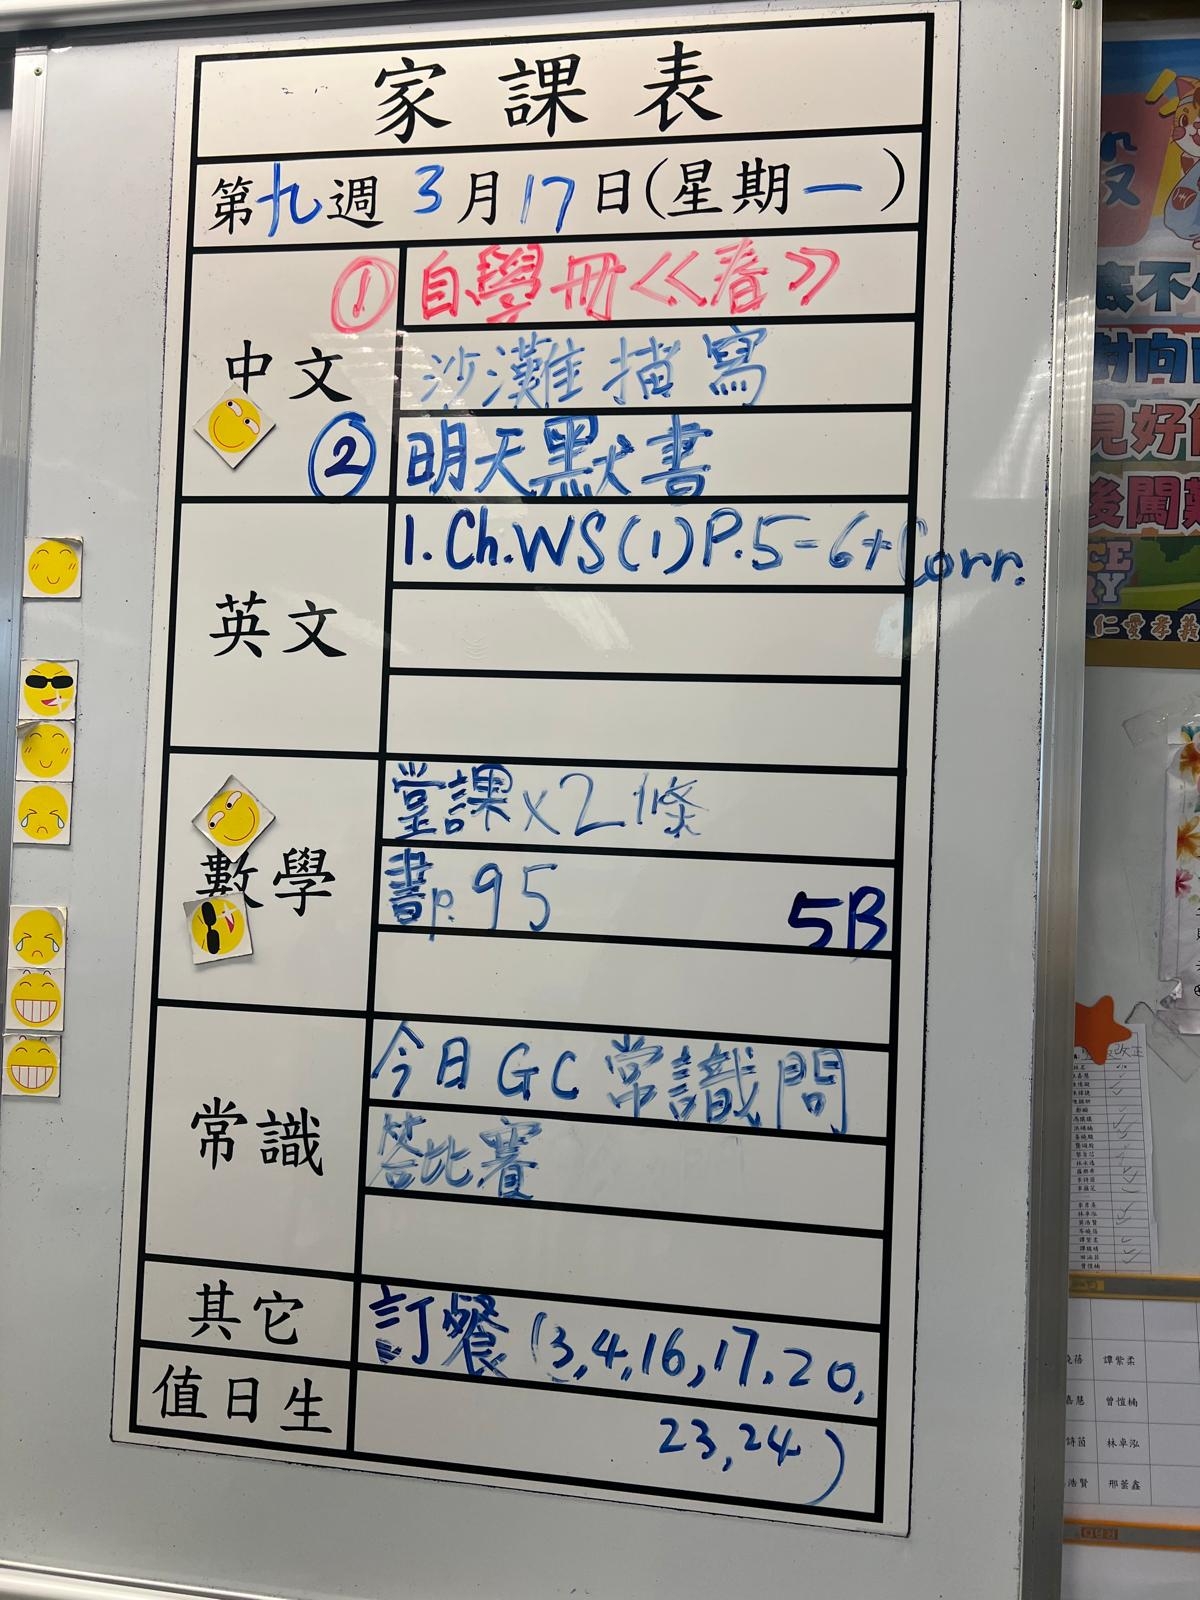 家課表
第九週 3月17日(星期一)
中文
① 自學冊《春》
沙灘描寫
② 明天默書
英文
1. Ch.WS(1)P.5-6+Corr.
數學
堂課x2條
書p.95 5B
常識
今日GC常識問
答比賽
其它
訂餐(3,4,16,17,20,
23,24)
值日生
底不
見好
後闖
仁愛孝義
改正
譚紫柔
嘉慧 曾愷楠
詩茵 林卓泓
浩賢